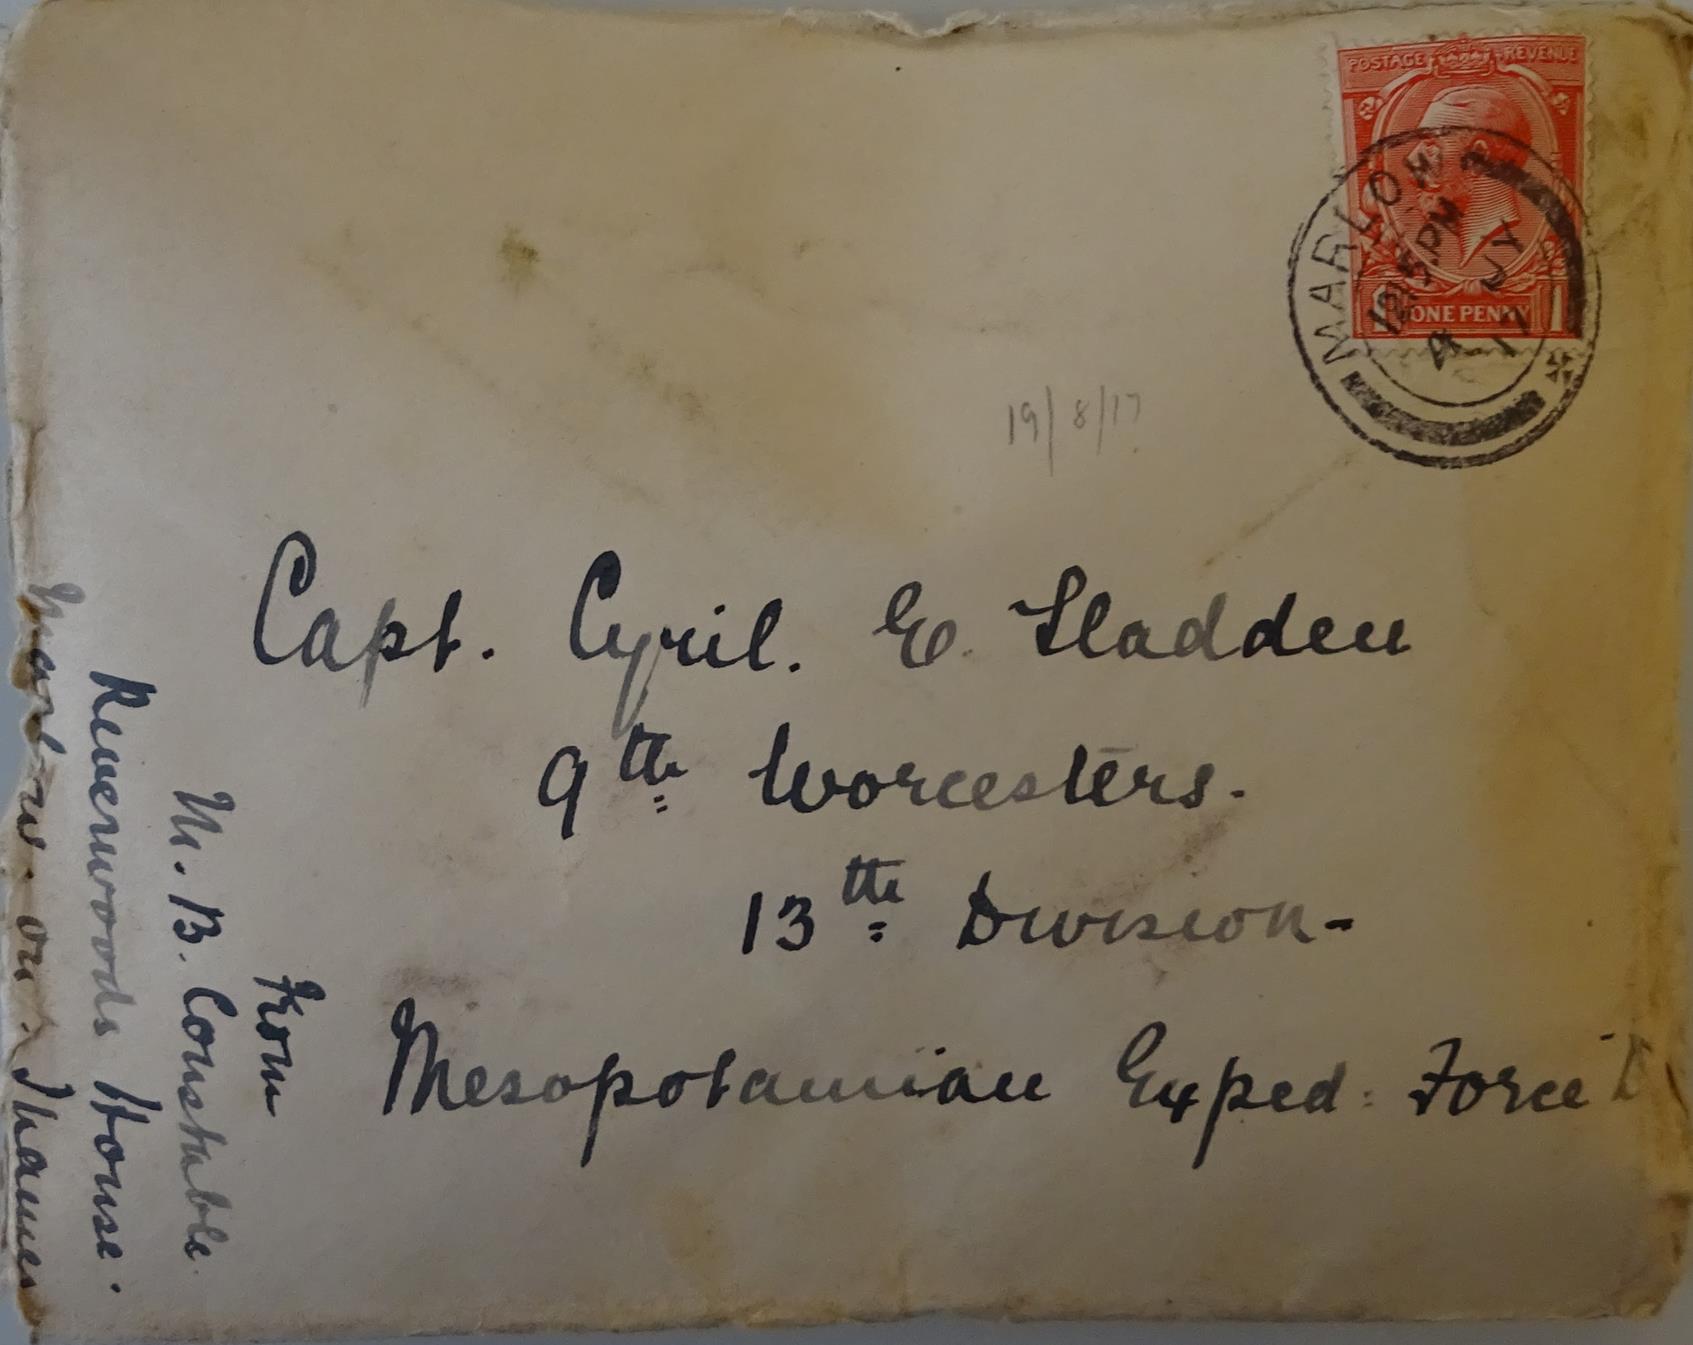 POSTAGE REVENUE
ONE PENNY
MARLOW
12.15 PM
4 JY
17
19/8/17
Capt. Cyril. E. Sladden
9th Worcesters.
13th Division-
Mesopotamian Exped: Force
From
M. B. Constable.
House.
on Thames